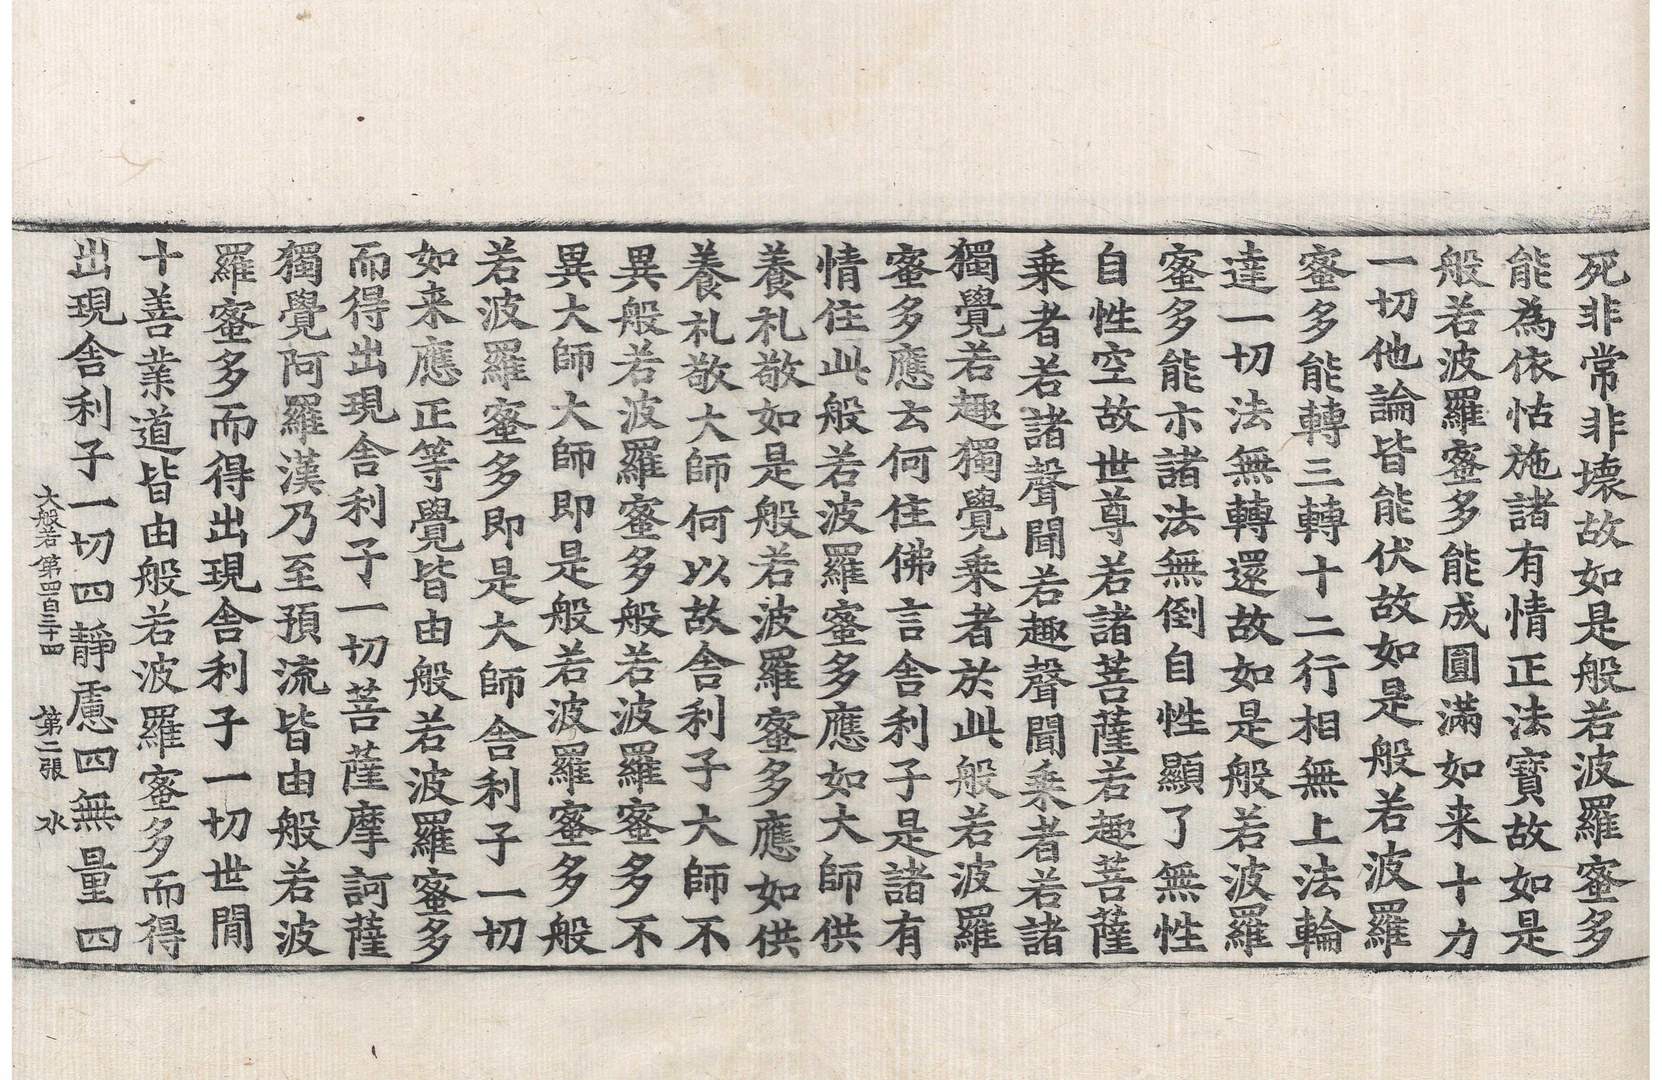 死非常非壞故如是般若波羅蜜多
能為依怙施諸有情正法寶故如是
般若波羅蜜多能成圓滿如来十力
一切他論皆能伏故如是般若波羅
蜜多能轉三轉十二行相無上法輪
達一切法無轉還故如是般若波羅
蜜多能示諸法無倒自性顯了無性
自性空故世尊若諸菩薩若趣菩薩
乗者若諸聲聞若趣聲聞乗者若諸
獨覺若趣獨覺乗者於此般若波羅
蜜多應云何住佛言舍利子是諸有
情住此般若波羅蜜多應如大師供
養札敬如是般若波羅蜜多應如供
養札敬大師何以故舍利子大師不
異般若波羅蜜多般若波羅蜜多不
異大師大師即是般若波羅蜜多般
若波羅蜜多即是大師舍利子一切
如来應正等覺皆由般若波羅蜜多
而得出現舍利子一切菩薩摩訶薩
獨覺阿羅漢乃至預流皆由般若波
羅蜜多而得出現舍利子一切世閒
十善業道皆由般若波羅蜜多而得
出現舍利子一切四靜慮四無量四
大般若第四百三十四 第二張 水